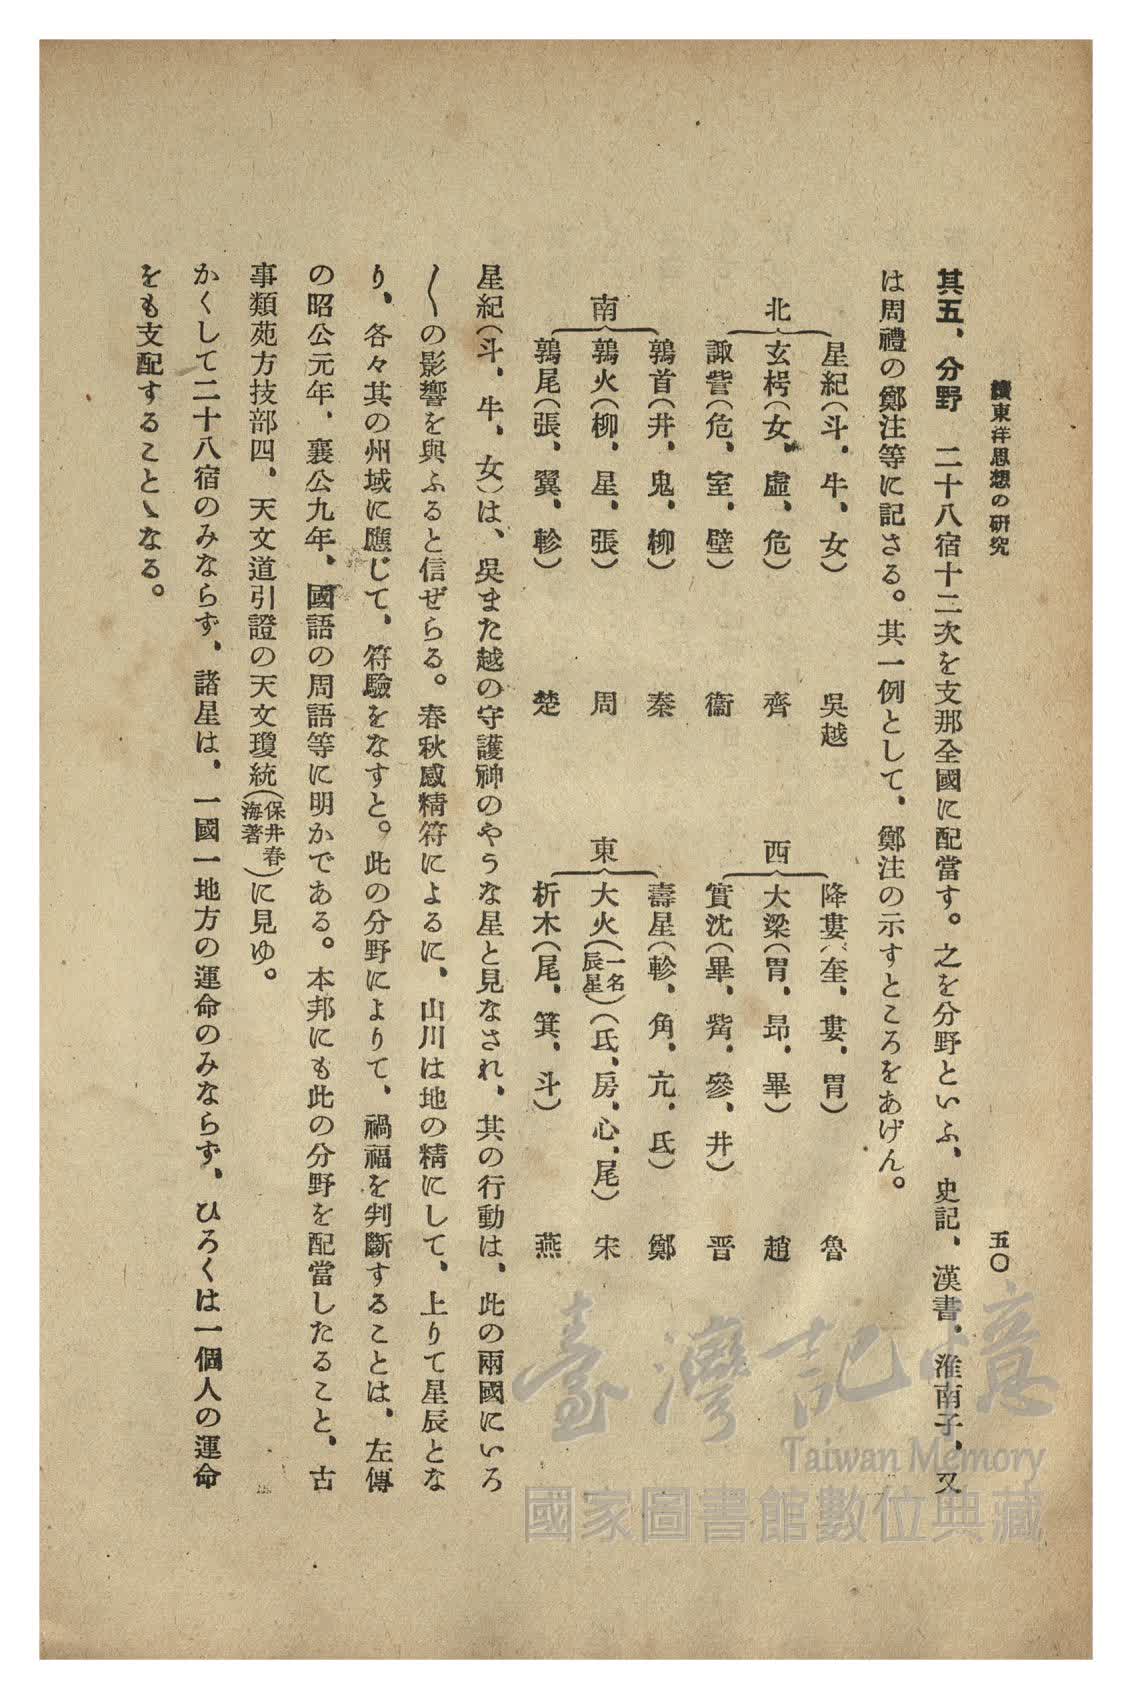 續東洋思想の硏究
五〇
其五、分野　二十八宿十二次を支那全國に配當す。之を分野といふ、史記、漢書、淮南子、又
は周禮の鄭注等に記さる。其一例として、鄭注の示すところをあげん。
北
星紀(斗、牛、女)　吳越
玄枵(女、虛、危)　齊
諏訾(危、室、壁)　衞
南
鶉首(井、鬼、柳)　秦
鶉火(柳、星、張)　周
鶉尾(張、翼、軫)　楚
西
降婁(奎、婁、胃)　魯
大梁(胃、昴、畢)　趙
實沈(畢、觜、參、井)　晋
東
壽星(軫、角、亢、氐)　鄭
大火(一名辰星)(氐、房、心、尾)　宋
析木(尾、箕、斗)　燕
星紀(斗、牛、女)は、吳また越の守護神のやうな星と見なされ、其の行動は、此の兩國にいろ
〱の影響を與ふると信ぜらる。春秋感精符によるに、山川は地の精にして、上りて星辰とな
り、各々其の州域に應じて、符驗をなすと。此の分野によりて、禍福を判斷することは、左傳
の昭公元年、襄公九年、國語の周語等に明かである。本邦にも此の分野を配當したること、古
事類苑方技部四、天文道引證の天文瓊統(保井春海著)に見ゆ。
かくして二十八宿のみならず、諸星は、一國一地方の運命のみならず、ひろくは一個人の運命
をも支配することゝなる。
臺灣記憶
Taiwan Memory
國家圖書館數位典藏